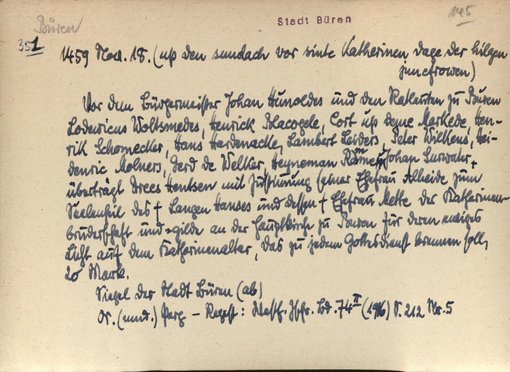 Büren
Stadt Büren
145
351
1459 Nov. 18. (up den sundach vor sinte Katherinen dage der hilgen
juncfrowen)
Vor dem Bürgermeister Johan Hunoldes und den Ratleuten zu Büren
Lodewicus Woltsmedes, Henrick Cort up deme Markede, Hen-
rik Schomecker, Hans Hardenacke, Lambert Leiders, Peter Wilkens, Hei-
denric Molners, Gerd de Welker, Heyneman Johan
überträgt Drees Hentsen mit Zustimmung seiner Ehefrau Alheide zum
Seelenheil des † Langen Hanses und dessen † Ehefrau Mette der Katharinen-
bruderschaft und -gilde an der Hauptkirche zu Büren für deren ewiges
Licht auf dem Katharinenaltar, das zu jedem Gottesdienst brennen soll,
20 Mark.
Siegel der Stadt Büren (ab)
Or. (mnd.) Perg – Regest: Westf. Zs. Bd. 74 II (1916) S. 212 Nr. 5